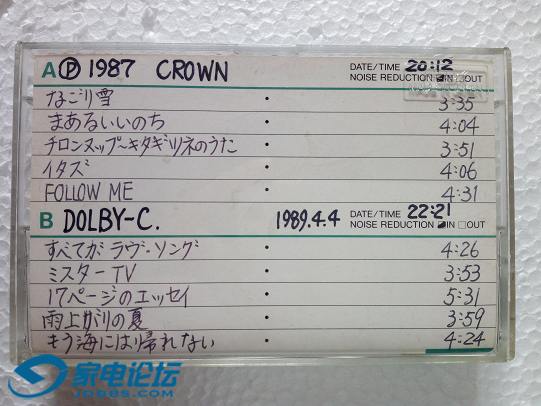 A Ⓟ 1987 CROWN DATE/TIME 20:12
NOISE REDUCTION IN OUT
なごり雪 ・ 3:35
まあるいいのち ・ 4:04
チロンヌップ〜キタギツネのうた ・ 3:51
イタズ ・ 4:06
FOLLOW ME ・ 4:31
B DOLBY-C. 1989.4.4 DATE/TIME 22:21
NOISE REDUCTION IN OUT
すべてがラヴ・ソング ・ 4:26
ミスターTV ・ 3:53
17ページのエッセイ ・ 5:31
雨上がりの夏 ・ 3:59
もう海には帰れない ・ 4:24
家电论坛
JDBBS.COM